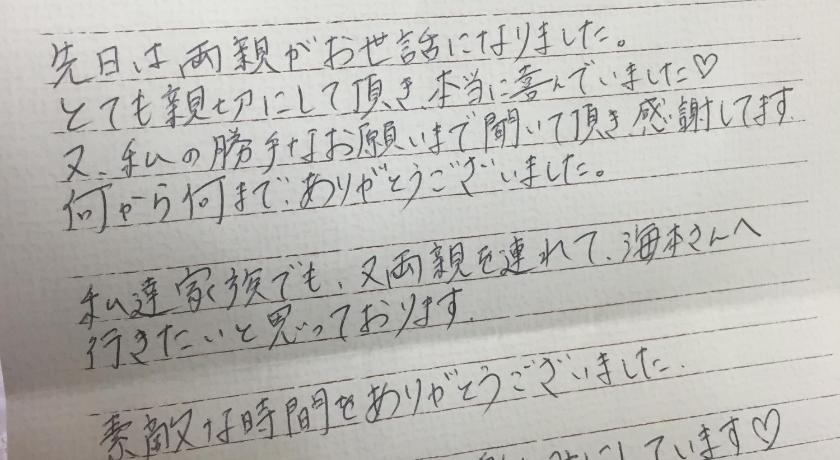 先日は両親がお世話になりました。
とても親切にして頂き本当に喜んでいました♡
又、私の勝手なお願いまで聞いて頂き感謝してます.
何から何まで、ありがとうございました。
私達家族でも、又両親を連れて、海本さんへ
行きたいと思っております.
素敵な時間をありがとうございました.
しています♡